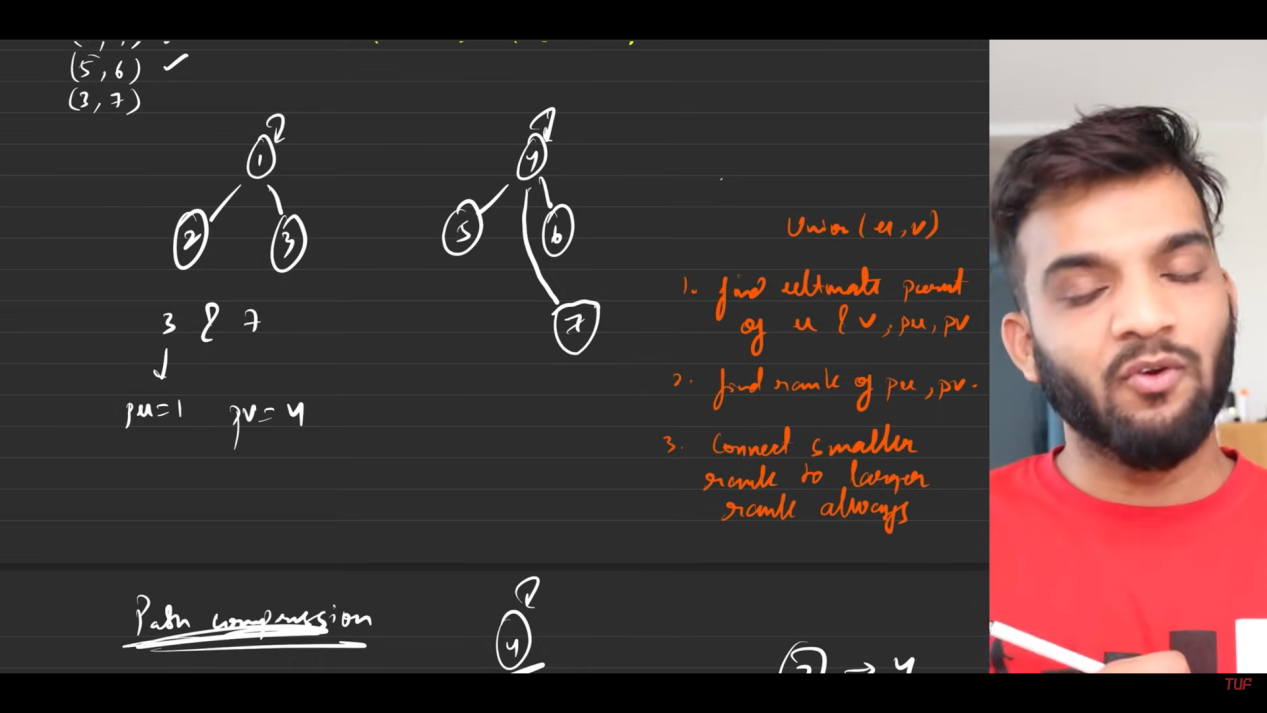 (5, 6) ✓
(3, 7)
1
2
3
4
5
6
7
3 & 7
pu=1 pv=4
Union(u,v)
1. find ultimate parent
of u & v, pu, pv
2. find rank of pu, pv.
3. Connect smaller
rank to larger
rank always
Path compression
4
→ 4
TUF